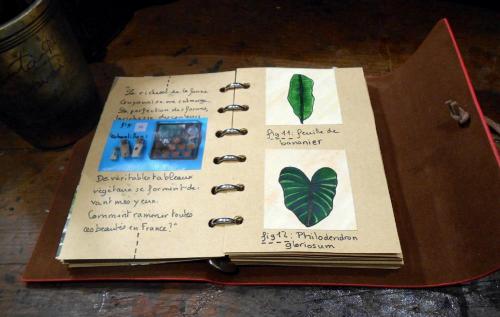 "La richesse de la faune
Guyanaise me submerge.
La perfection des formes,
la richesse des couleurs
fig
échantillons
De véritables tableaux
végétaux se forment de-
vant mes yeux.
Comment ramener toutes
ces beautés en France?"
fig 11: feuille de
bananier
fig 12: Philodendron
gloriosum